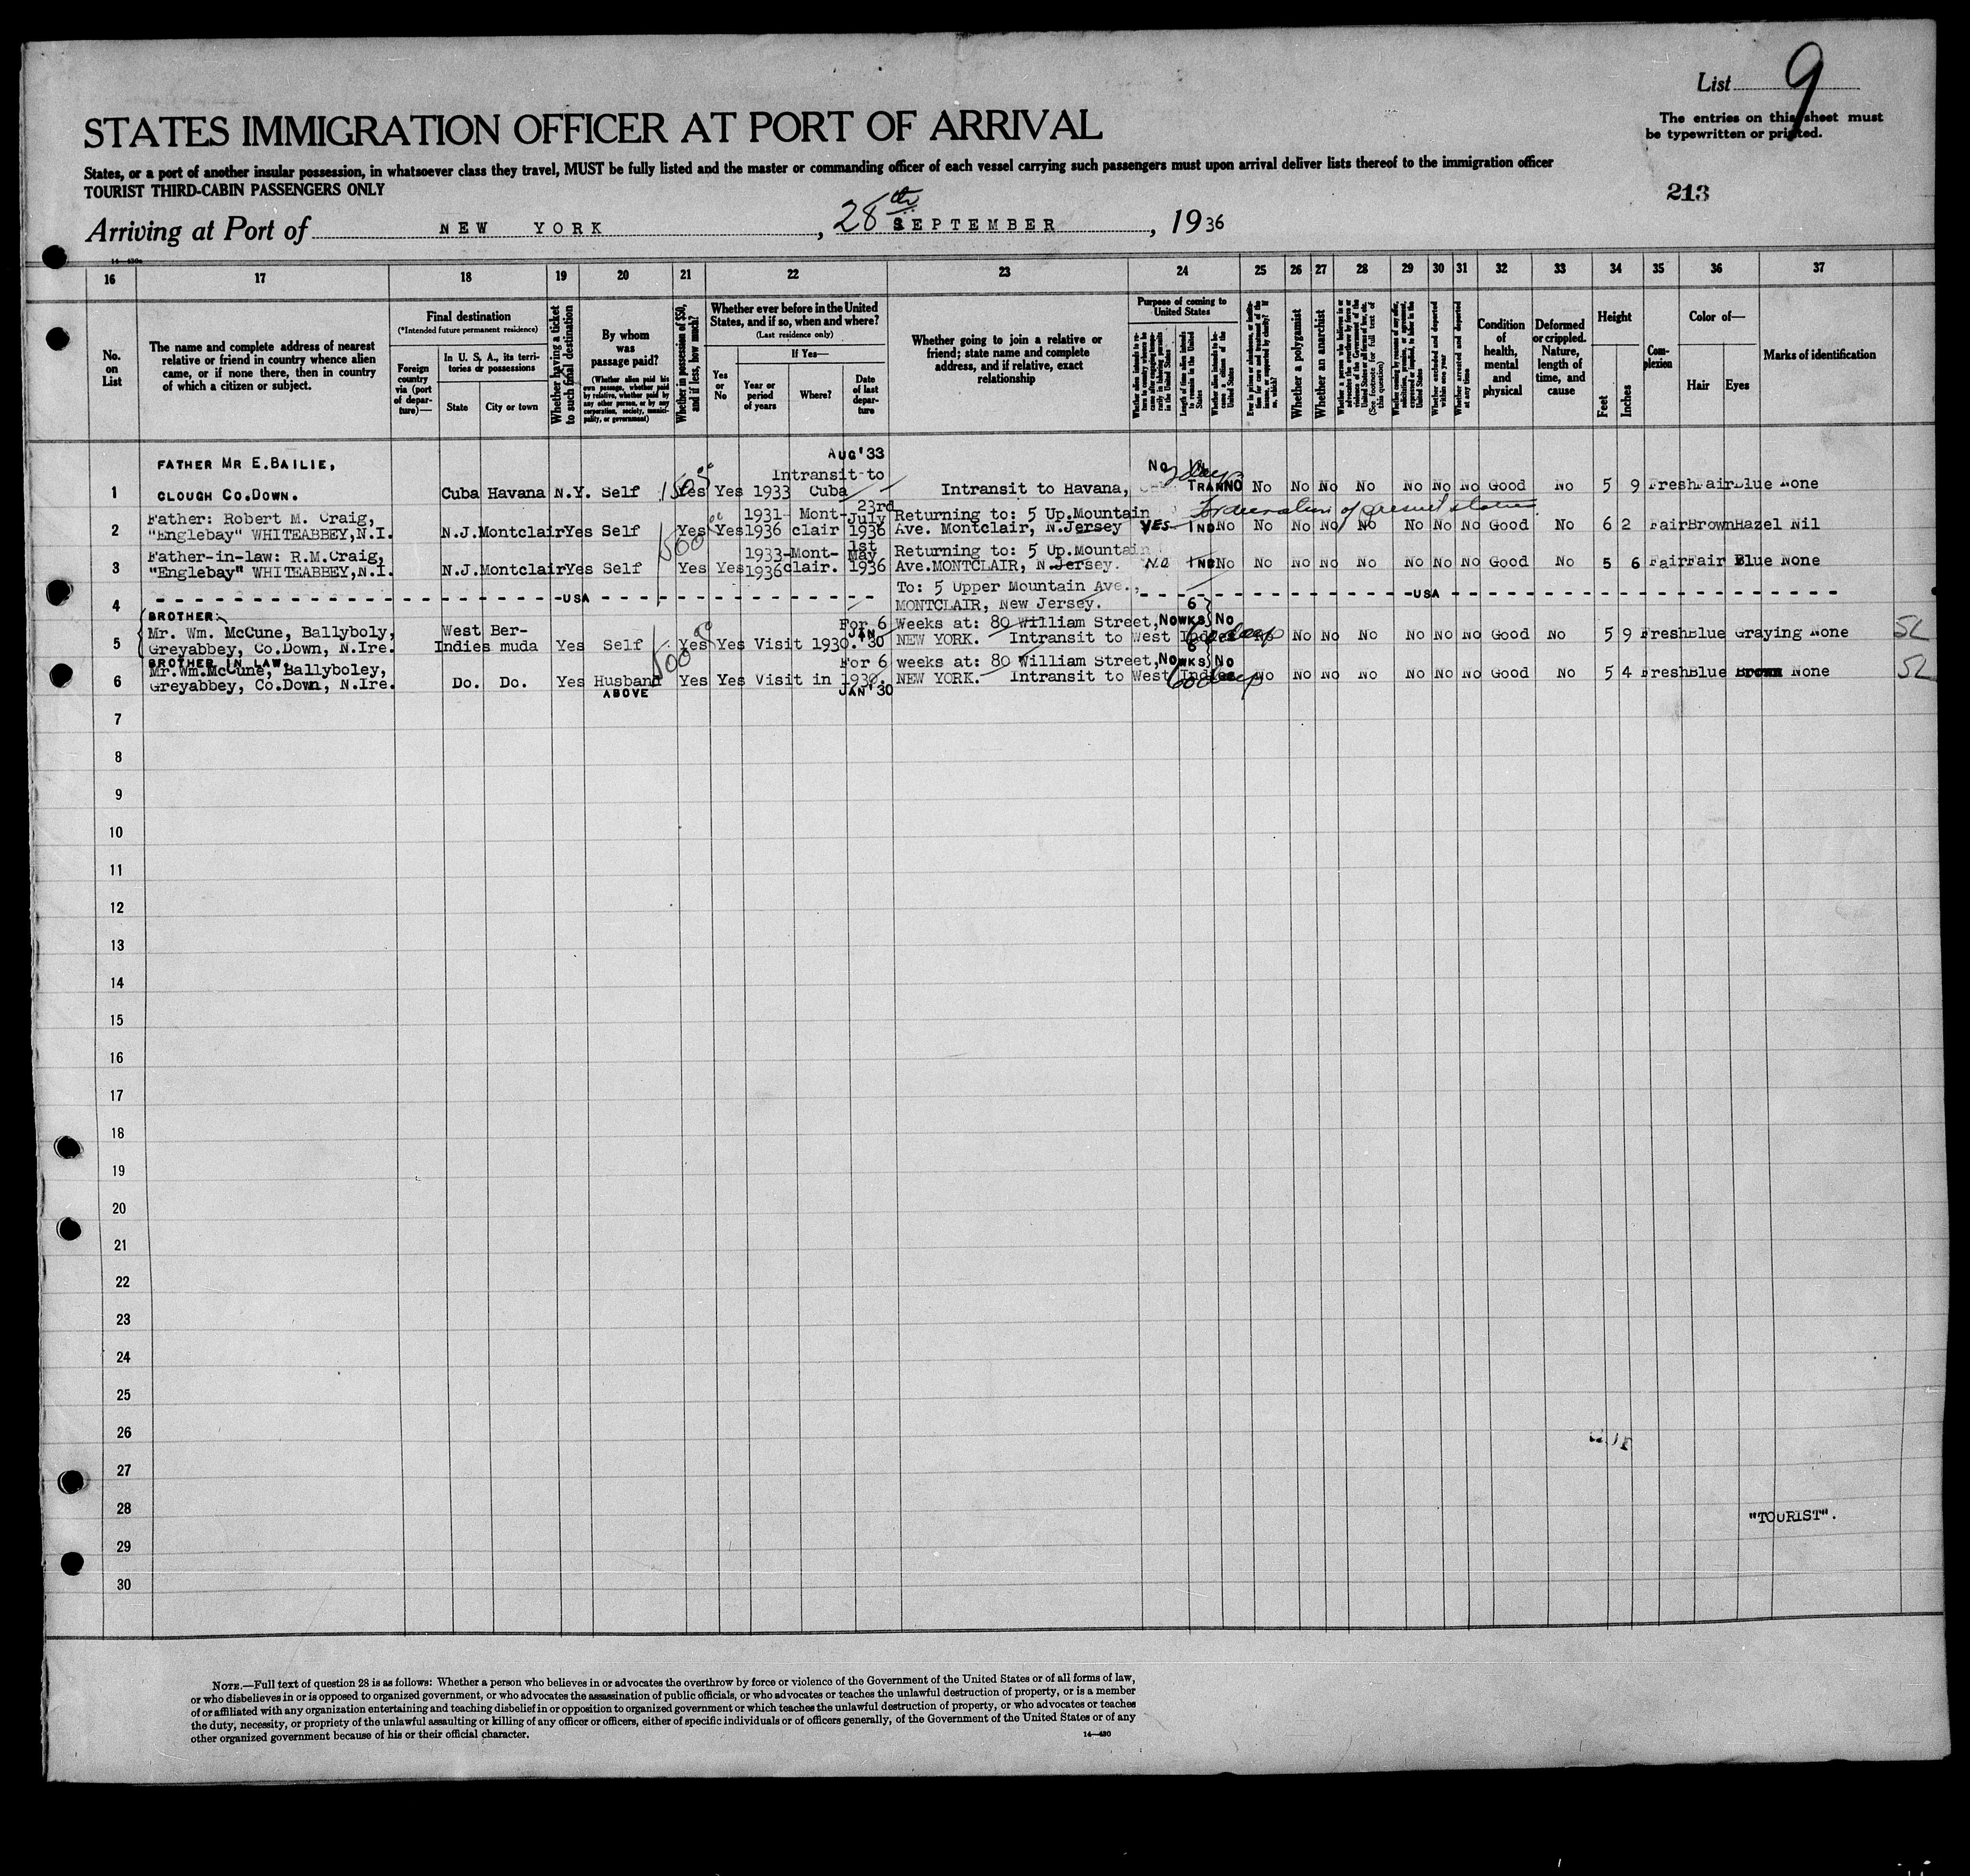 List 9
The entries on this sheet must
be typewritten or printed.
STATES IMMIGRATION OFFICER AT PORT OF ARRIVAL
States, or a port of another insular possession, in whatsoever class they travel, MUST be fully listed and the master or commanding officer of each vessel carrying such passengers must upon arrival deliver lists thereof to the immigration officer
TOURIST THIRD-CABIN PASSENGERS ONLY
213
Arriving at Port of NEW YORK, 28th SEPTEMBER, 1936
16 17 18 19 20 21 22 23 24 25 26 27 28 29 30 31 32 33 34 35 36 37
No.
on
List
The name and complete address of nearest
relative or friend in country whence alien
came, or if none there, then in country
of which a citizen or subject.
Final destination
(*Intended future permanent residence)
Foreign
country
via (port
of depar-
ture)—
In U. S. A., its terri-
tories or possessions
State
City or town
Whether having a ticket
to such final destination
By whom
was
passage paid?
(Whether alien paid his
own passage, whether paid
by relative, whether paid by
any other person, or by any
corporation, society, munici-
pality, or government)
Whether in possession of $50,
and if less, how much?
Whether ever before in the United
States, and if so, when and where?
(Last residence only)
Yes
or
No
If Yes—
Year or
period
of years
Where?
Date
of last
depar-
ture
Whether going to join a relative or
friend; state name and complete
address, and if relative, exact
relationship
Purpose of coming to
United States
Length of time alien intends
to remain in the United
States
Whether a polygamist
Whether an anarchist
Whether arrested and deported
at any time
Condition
of
health,
mental
and
physical
Deformed
or crippled.
Nature,
length of
time, and
cause
Height
Feet
Inches
Com-
plexion
Color of—
Hair
Eyes
Marks of identification
AUG'33
FATHER MR E.BAILIE, Intransit to No
1 CLOUGH CO.DOWN. Cuba Havana N.Y. Self Yes Yes 1933 Cuba Intransit to Havana, TRAN NO No No No No No No No Good No 5 9 Fresh Fair Blue None
Father: Robert M. Craig, 1931- Mont- 23rd July Returning to: 5 Up.Mountain
2 "Englebay" WHITEABBEY,N.I. N.J. Montclair Yes Self Yes Yes 1936 clair 1936 Ave. Montclair, N.Jersey YES IND No No No No No No No No Good No 6 2 Fair Brown Hazel Nil
Father-in-law: R.M.Craig, 1933- Mont- 1st May Returning to: 5 Up.Mountain
3 "Englebay" WHITEABBEY,N.I. N.J. Montclair Yes Self Yes Yes 1936 clair. 1936 Ave.MONTCLAIR, N.Jersey. No IND No No No No No No No No Good No 5 6 Fair Fair Blue None
To: 5 Upper Mountain Ave.,
4 -USA MONTCLAIR, New Jersey. -USA
BROTHER: For 6 Weeks at: 80 William Street, No 6 WKS No
5 Mr. Wm. McCune, Ballyboly, West Ber- JAN
Greyabbey, Co.Down, N.Ire. Indies muda Yes Self Yes Yes Visit 1930. '30 NEW YORK. Intransit to West Indies 60 days No No No No No No No Good No 5 9 Fresh Blue Graying None SL
BROTHER IN LAW.
Mr.Wm.McCune, Ballyboley, For 6 weeks at: 80 William Street, No 6 WKS No
6 Greyabbey, Co.Down, N.Ire. Do. Do. Yes Husband Yes Yes Visit in 1930. NEW YORK. Intransit to West Indies 60 days No No No No No No No Good No 5 4 Fresh Blue Brown None SL
ABOVE JAN'30
7
8
9
10
11
12
13
14
15
16
17
18
19
20
21
22
23
24
25
26
27
28
"TOURIST".
29
30
NOTE.—Full text of question 28 is as follows: Whether a person who believes in or advocates the overthrow by force or violence of the Government of the United States or of all forms of law,
or who disbelieves in or is opposed to organized government, or who advocates the assassination of public officials, or who advocates or teaches the unlawful destruction of property, or is a member
of or affiliated with any organization entertaining and teaching disbelief in or opposition to organized government or which teaches the unlawful destruction of property, or who advocates or teaches
the duty, necessity, or propriety of the unlawful assaulting or killing of any officer or officers, either of specific individuals or of officers generally, of the Government of the United States or of any
other organized government because of his or their official character.
14—430